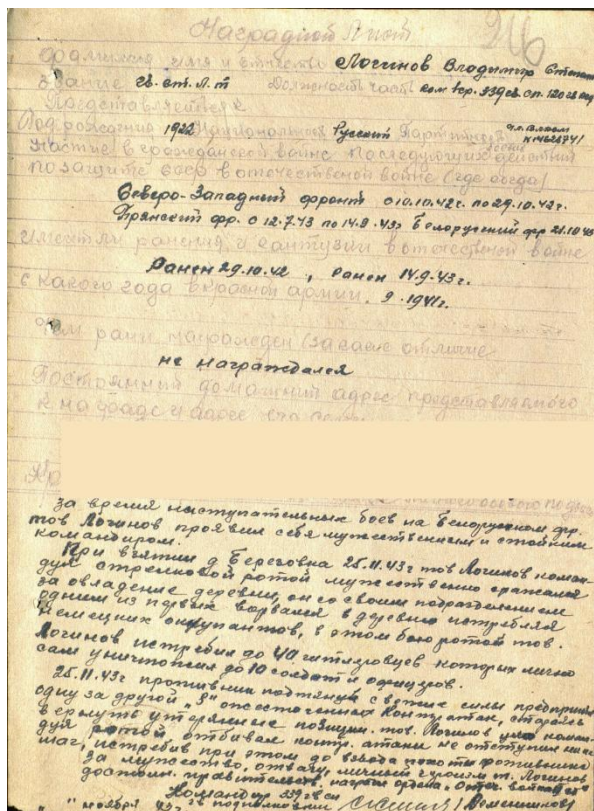 Наградной Лист
216
Фамилия, имя и отчество Логинов Владимир Степан
Звание гв. ст. Л-т Должность часть ком. стр. 339 гв. сп. 120 гв.
Представляется к
Год рождения 1922 Национальность Русский Партийность
Участие в гражданской войне последующих действий
по защите СССР в отечественной войне (где когда)
Северо-Западный фронт с 10.10.42г. по 29.10.42г.
Брянский фр. с 12.7.43 по 14.9.43г. Белорусский фр 21.10.43
имеет ли ранения и контузии в отечественной войне
Ранен 29.10.42, ранен 14.9.43г.
с какого года в красной армии. 9.1941г.
чем ранее награжден (за какие отличие
не награждался
Постоянный домашний адрес представляемого
к награде и адрес его
за время наступательных боев на Белорусском фр.
тов Логинов проявил себя мужественным и стойким
командиром.
При взятии д. Береговка 25.11.43г тов Логинов коман-
дуя стрелковой ротой мужественно сражался
за овладение деревни, он со своим подразделением
одним из первых ворвался в деревню истребляя
немецких оккупантов, в этом бою ротой тов.
Логинов истребил до 40 гитлеровцев которых лично
сам уничтожил до 10 солдат и офицеров.
25.11.43г противник подтянув свежие силы предпринял
одну за другой "8" ожесточенных контратак, стараясь
вернуть утерянные позиции. тов. Логинов коман-
дуя ротой отбивал контр. атаки не отступил ни на
шаг, истребив при этом до взвода пехоты противника
за мужество, отвагу, личный героизм т. Логинов
достоин. правительств. награды ордена "Отеч. войны
Командир 339 гв сп
гв подполковник
" ноября 43г